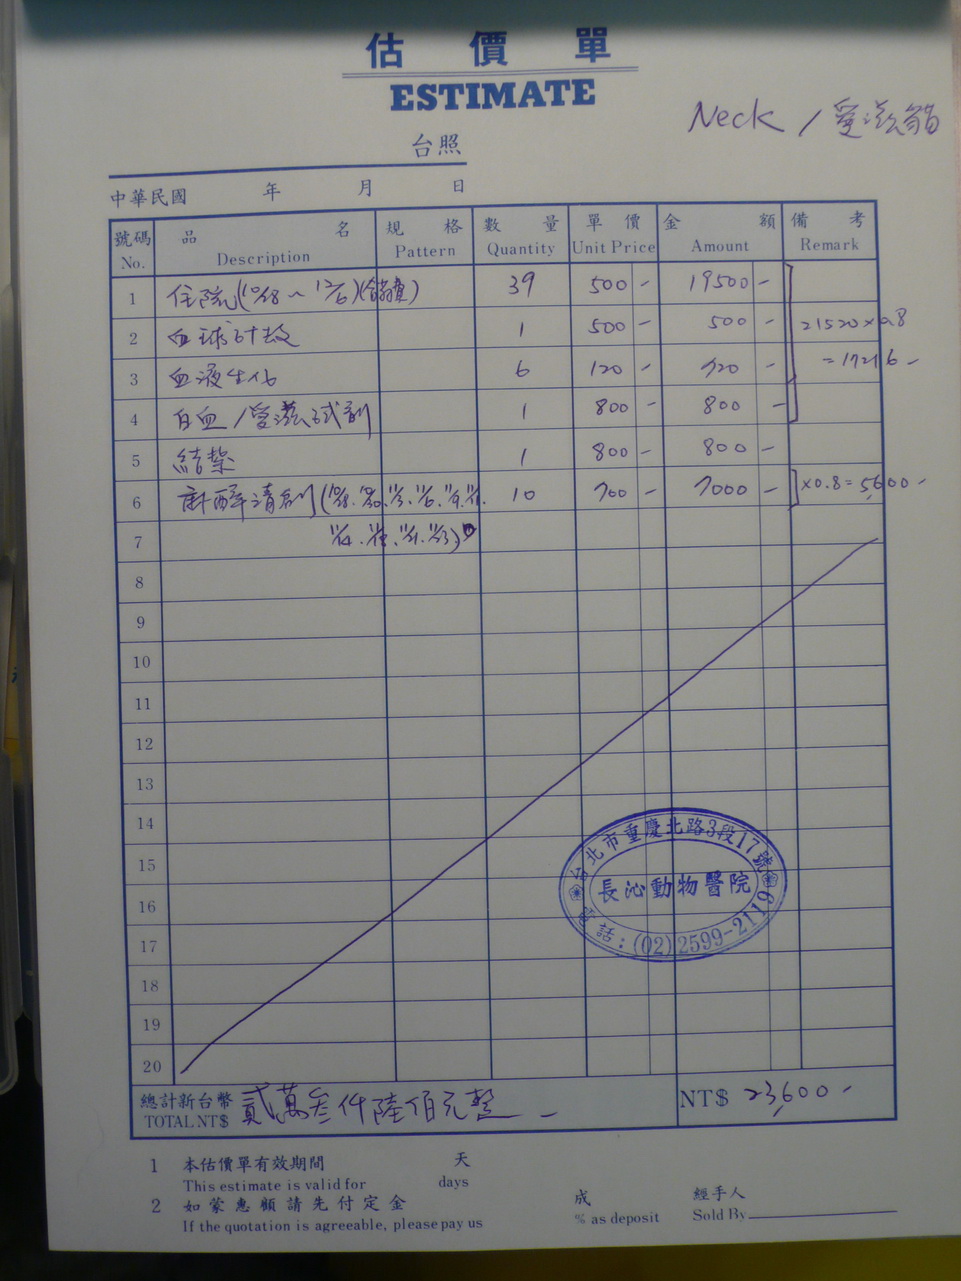 估價單
ESTIMATE
Neck / 愛滋貓
台照
中華民國 年 月 日
號碼 品名 規格 數量 單價 金額 備考
No. Description Pattern Quantity Unit Price Amount Remark
1 住院(10/18~12/6)(含醫費) 39 500 - 19500 -
2 血球計數 1 500 - 500 - 21520×0.8
3 血液生化 6 120 - 720 - =17216 -
4 白血/愛滋試劑 1 800 - 800 -
5 結紮 1 800 - 800 -
6 麻醉清創( 10 700 - 7000 - ×0.8=5600 -
7
8
9
10
11
12
13
14
15
16
17
18
19
20
台北市重慶北路3段17號
長沁動物醫院
電話:(02)2599-2119
總計新台幣 貳萬叁仟陸佰元整 -
TOTAL NT$ NT$ 23,600 -
1 本估價單有效期間 天
This estimate is valid for days
2 如蒙惠顧請先付定金 成 經手人
If the quotation is agreeable, please pay us % as deposit Sold By